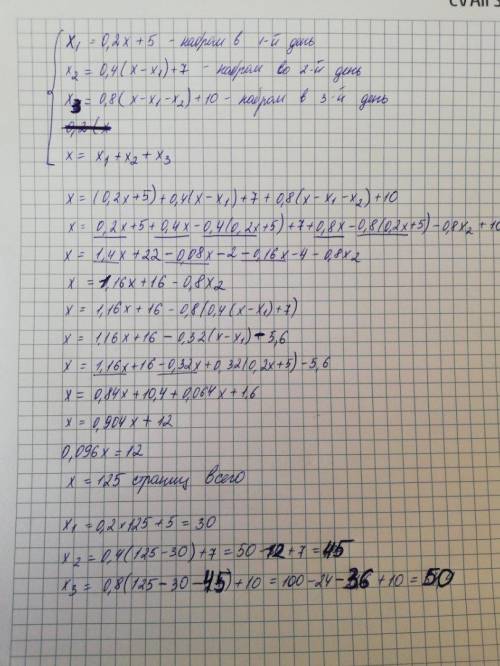 CV AIr S
x₁ = 0,2x+5 - набрал в 1-й день
x₂ = 0,4(x-x₁)+7 - набрал во 2-й день
x₃ = 0,8(x-x₁-x₂)+10 - набрал в 3-й день
0,2(x
x = x₁+x₂+x₃
x = (0,2x+5)+0,4(x-x₁)+7+0,8(x-x₁-x₂)+10
x = 0,2x+5+0,4x-0,4(0,2x+5)+7+0,8x-0,8(0,2x+5)-0,8x₂+10
x = 1,4x+22-0,08x-2-0,16x-4-0,8x₂
x = 1,16x+16-0,8x₂
x = 1,16x+16-0,8(0,4(x-x₁)+7)
x = 1,16x+16-0,32(x-x₁)-5,6
x = 1,16x+16-0,32x+0,32(0,2x+5)-5,6
x = 0,84x+10,4+0,064x+1,6
x = 0,904x+12
0,096x = 12
x = 125 страниц всего
x₁ = 0,2×125+5 = 30
x₂ = 0,4(125-30)+7 = 50-12+7 = 45
x₃ = 0,8(125-30-45)+10 = 100-24-36+10 = 50